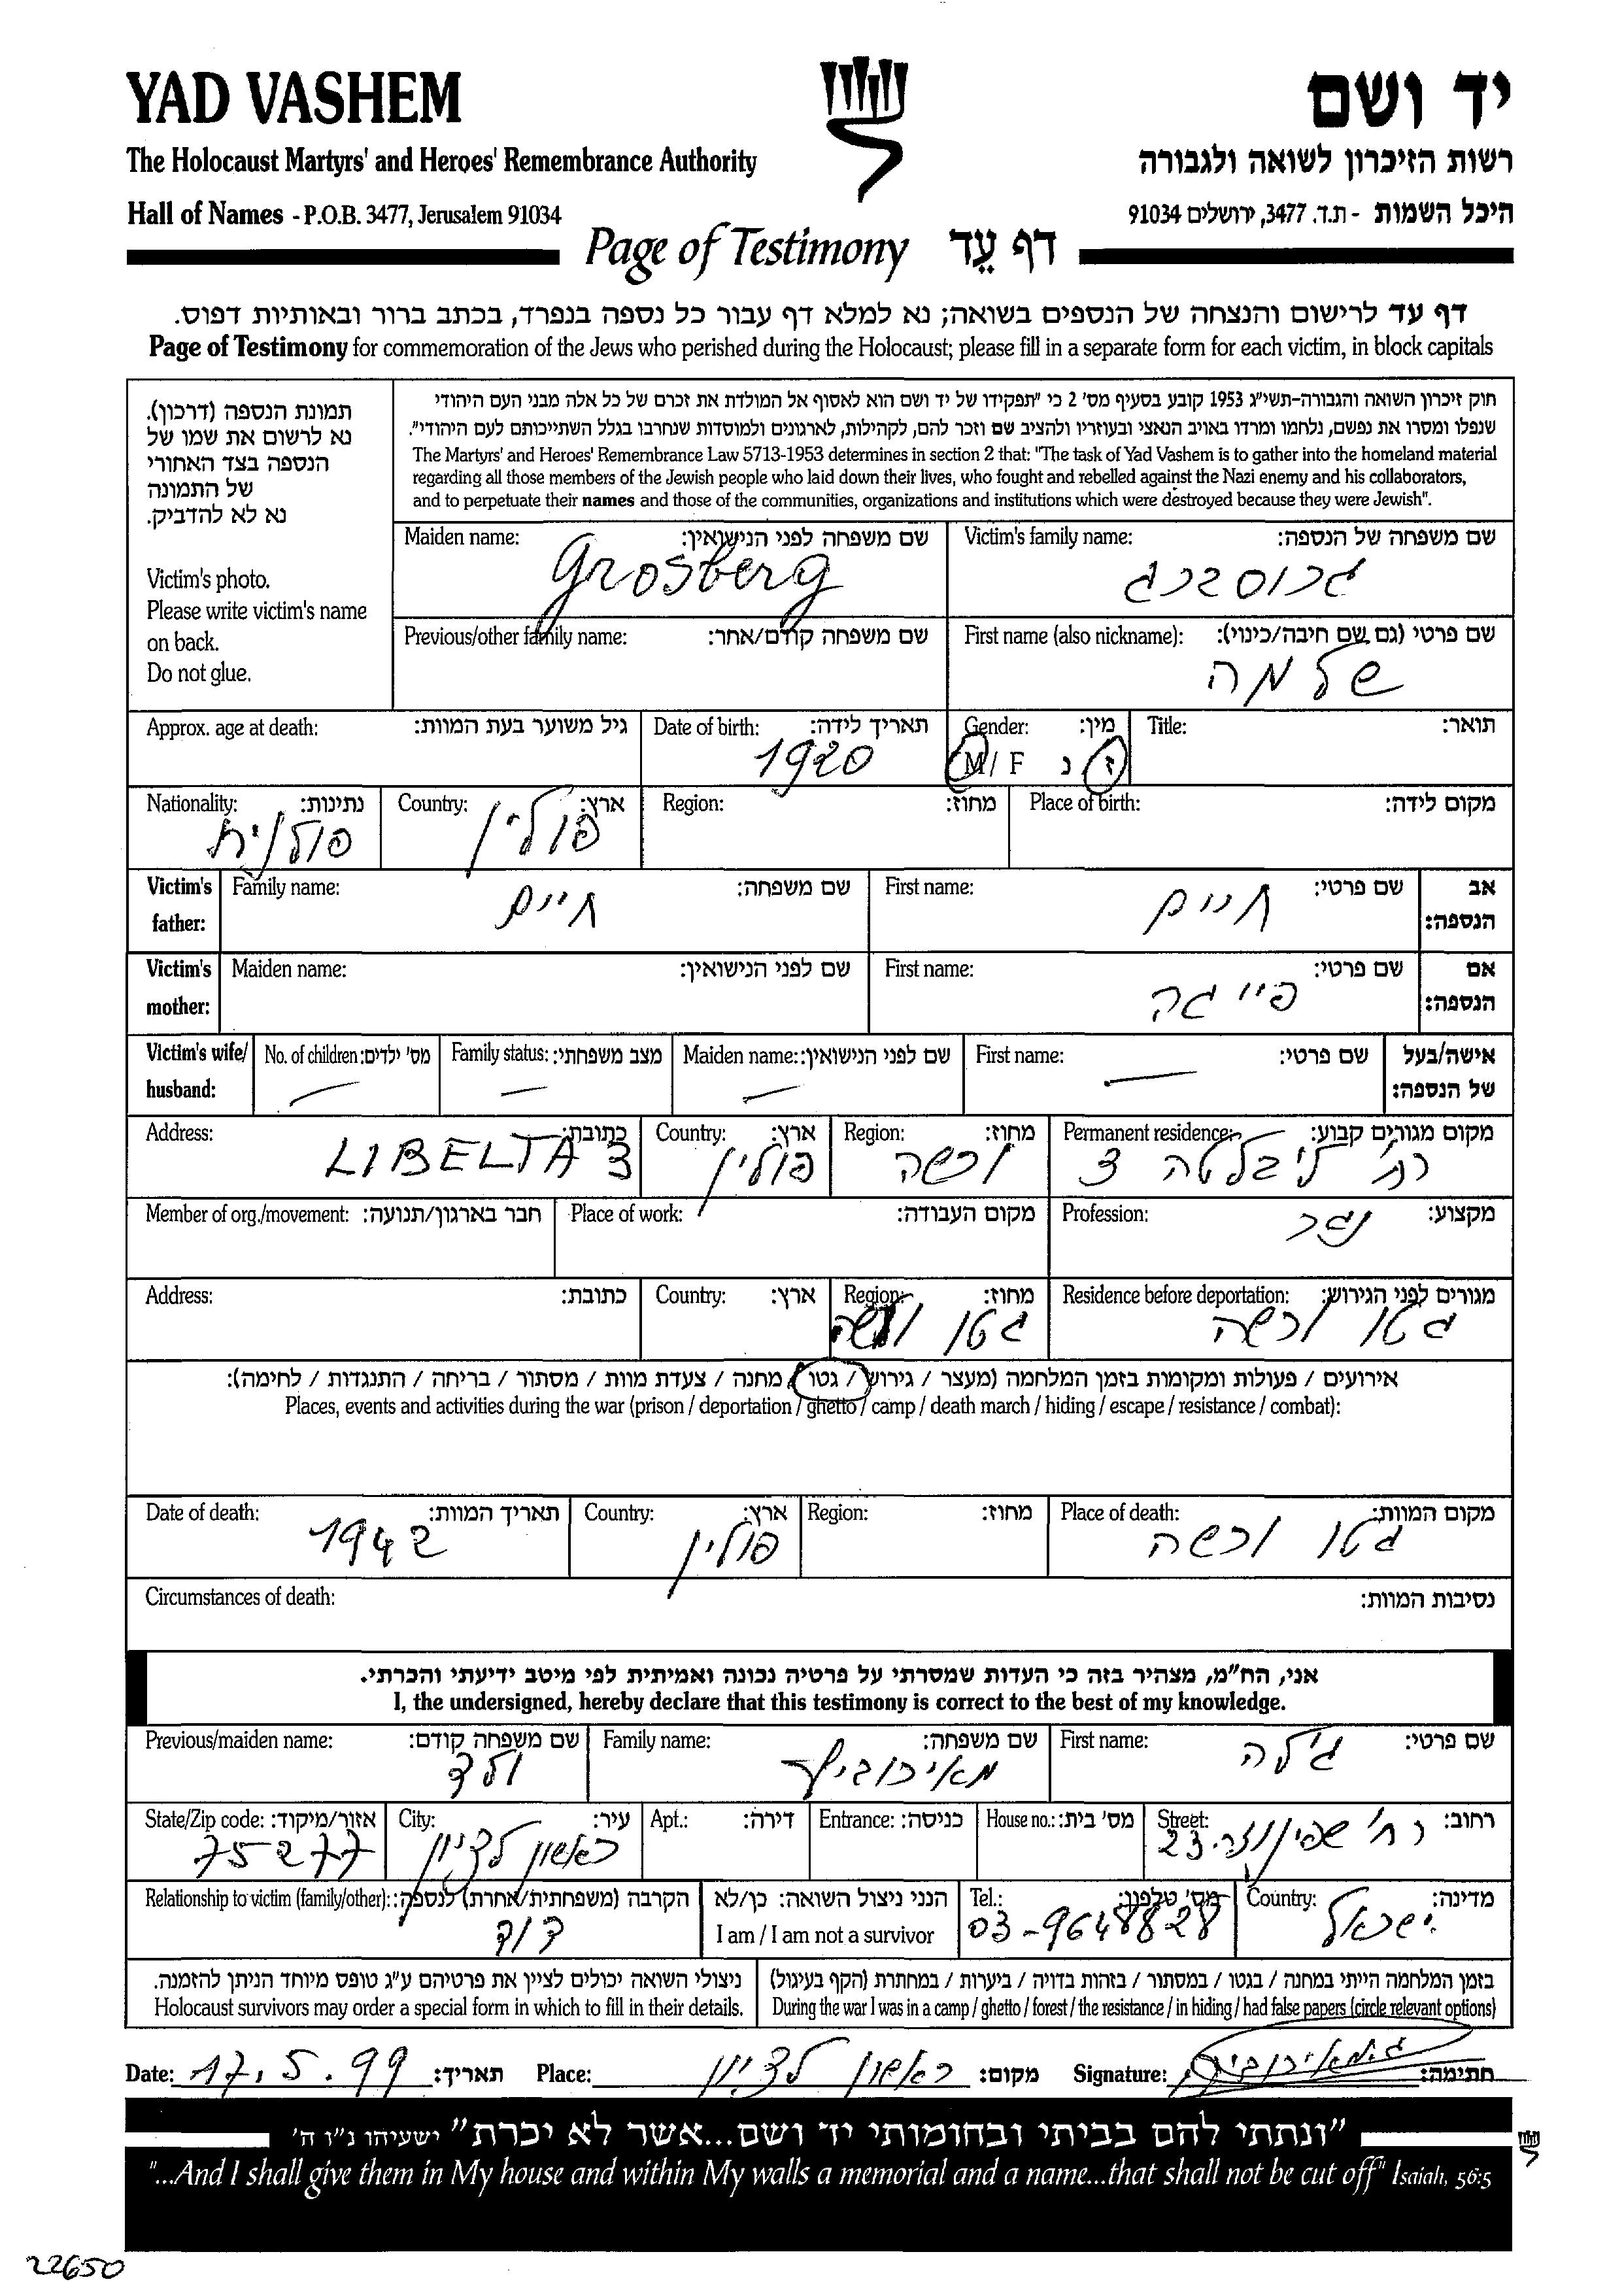 YAD VASHEM
יד ושם
The Holocaust Martyrs' and Heroes' Remembrance Authority
רשות הזיכרון לשואה ולגבורה
Hall of Names - P.O.B. 3477, Jerusalem 91034
היכל השמות - ת.ד. 3477, ירושלים 91034
Page of Testimony דף עֵד
דף עד לרישום והנצחה של הנספים בשואה; נא למלא דף עבור כל נספה בנפרד, בכתב ברור ובאותיות דפוס.
Page of Testimony for commemoration of the Jews who perished during the Holocaust; please fill in a separate form for each victim, in block capitals
תמונת הנספה (דרכון).
נא לרשום את שמו של
הנספה בצד האחורי
של התמונה
נא לא להדביק.
Victim's photo.
Please write victim's name
on back.
Do not glue.
חוק זיכרון השואה והגבורה-תשי"ג 1953 קובע בסעיף מס' 2 כי "תפקידו של יד ושם הוא לאסוף אל המולדת את זכרם של כל אלה מבני העם היהודי
שנפלו ומסרו את נפשם, נלחמו ומרדו באויב הנאצי ובעוזריו ולהציב שם וזכר להם, לקהילות, לארגונים ולמוסדות שנחרבו בגלל השתייכותם לעם היהודי".
The Martyrs' and Heroes' Remembrance Law 5713-1953 determines in section 2 that: "The task of Yad Vashem is to gather into the homeland material
regarding all those members of the Jewish people who laid down their lives, who fought and rebelled against the Nazi enemy and his collaborators,
and to perpetuate their names and those of the communities, organizations and institutions which were destroyed because they were Jewish".
Victim's family name: שם משפחה של הנספה:
גרוסברג
Maiden name: שם משפחה לפני הנישואין:
Grosberg
First name (also nickname): שם פרטי (גם שם חיבה/כינוי):
שלמה
Previous/other family name: שם משפחה קודם/אחר:
Title: תואר:
Gender: מין:
M / F ז נ
Date of birth: תאריך לידה:
1920
Approx. age at death: גיל משוער בעת המוות:
Place of birth: מקום לידה:
Region: מחוז:
Country: ארץ:
פולין
Nationality: נתינות:
פולנית
Victim's father: אב הנספה:
First name: שם פרטי:
חיים
Family name: שם משפחה:
חיים
Victim's mother: אם הנספה:
First name: שם פרטי:
פייגה
Maiden name: שם לפני הנישואין:
Victim's wife/ husband: אישה/בעל של הנספה:
First name: שם פרטי:
—
Maiden name: שם לפני הנישואין:
—
Family status: מצב משפחתי:
—
No. of children: מס' ילדים:
—
Permanent residence: מקום מגורים קבוע:
רח' ליבלטה 3
Region: מחוז:
ורשה
Country: ארץ:
פולין
Address: כתובת:
LIBELTA 3
Profession: מקצוע:
נגר
Place of work: מקום העבודה:
Member of org./movement: חבר בארגון/תנועה:
Residence before deportation: מגורים לפני הגירוש:
גטו ורשה
Region: מחוז:
גטו ורשה
Country: ארץ:
Address: כתובת:
אירועים / פעולות ומקומות בזמן המלחמה (מעצר / גירוש / גטו / מחנה / צעדת מוות / מסתור / בריחה / התנגדות / לחימה):
Places, events and activities during the war (prison / deportation / ghetto / camp / death march / hiding / escape / resistance / combat):
Place of death: מקום המוות:
גטו ורשה
Region: מחוז:
Country: ארץ:
פולין
Date of death: תאריך המוות:
1942
Circumstances of death: נסיבות המוות:
אני, הח"מ, מצהיר בזה כי העדות שמסרתי על פרטיה נכונה ואמיתית לפי מיטב ידיעתי והכרתי.
I, the undersigned, hereby declare that this testimony is correct to the best of my knowledge.
First name: שם פרטי:
ג'לה
Family name: שם משפחה:
מאירוביץ
Previous/maiden name: שם משפחה קודם:
ולד
Street: רחוב:
רח' שפינוזה 23
House no.: מס' בית:
Entrance: כניסה:
Apt.: דירה:
City: עיר:
ראשון לציון
State/Zip code: אזור/מיקוד:
75277
Country: מדינה:
ישראל
Tel.: מס' טלפון:
03-9648828
הנני ניצול השואה: כן/לא
I am / I am not a survivor
Relationship to victim (family/other): הקרבה (משפחתית/אחרת) לנספה:
דוד
בזמן המלחמה הייתי במחנה / בגטו / במסתור / בזהות בדויה / ביערות / במחתרת (הקף בעיגול)
During the war I was in a camp / ghetto / forest / the resistance / in hiding / had false papers (circle relevant options)
ניצולי השואה יכולים לציין את פרטיהם ע"ג טופס מיוחד הניתן להזמנה.
Holocaust survivors may order a special form in which to fill in their details.
Date: 17.5.99 תאריך: Place: ראשון לציון מקום: Signature: ג. מאירוביץ חתימה:
"ונתתי להם בביתי ובחומותי יד ושם...אשר לא יכרת" ישעיהו נ"ו ה'
"...And I shall give them in My house and within My walls a memorial and a name...that shall not be cut off" Isaiah, 56:5
22650